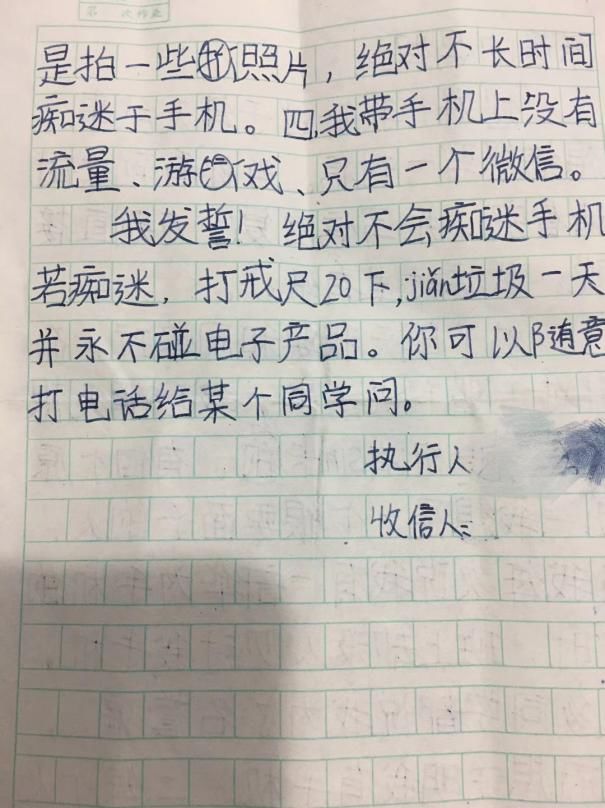 第 次作业
是拍一些照片，绝对不长时间
痴迷于手机。四,我带手机上没有
流量、游戏、只有一个微信。
我发誓！绝对不会痴迷手机
若痴迷，打戒尺20下,jiǎn垃圾一天
并永不碰电子产品。你可以随意
打电话给某个同学问。
执行人
收信人: